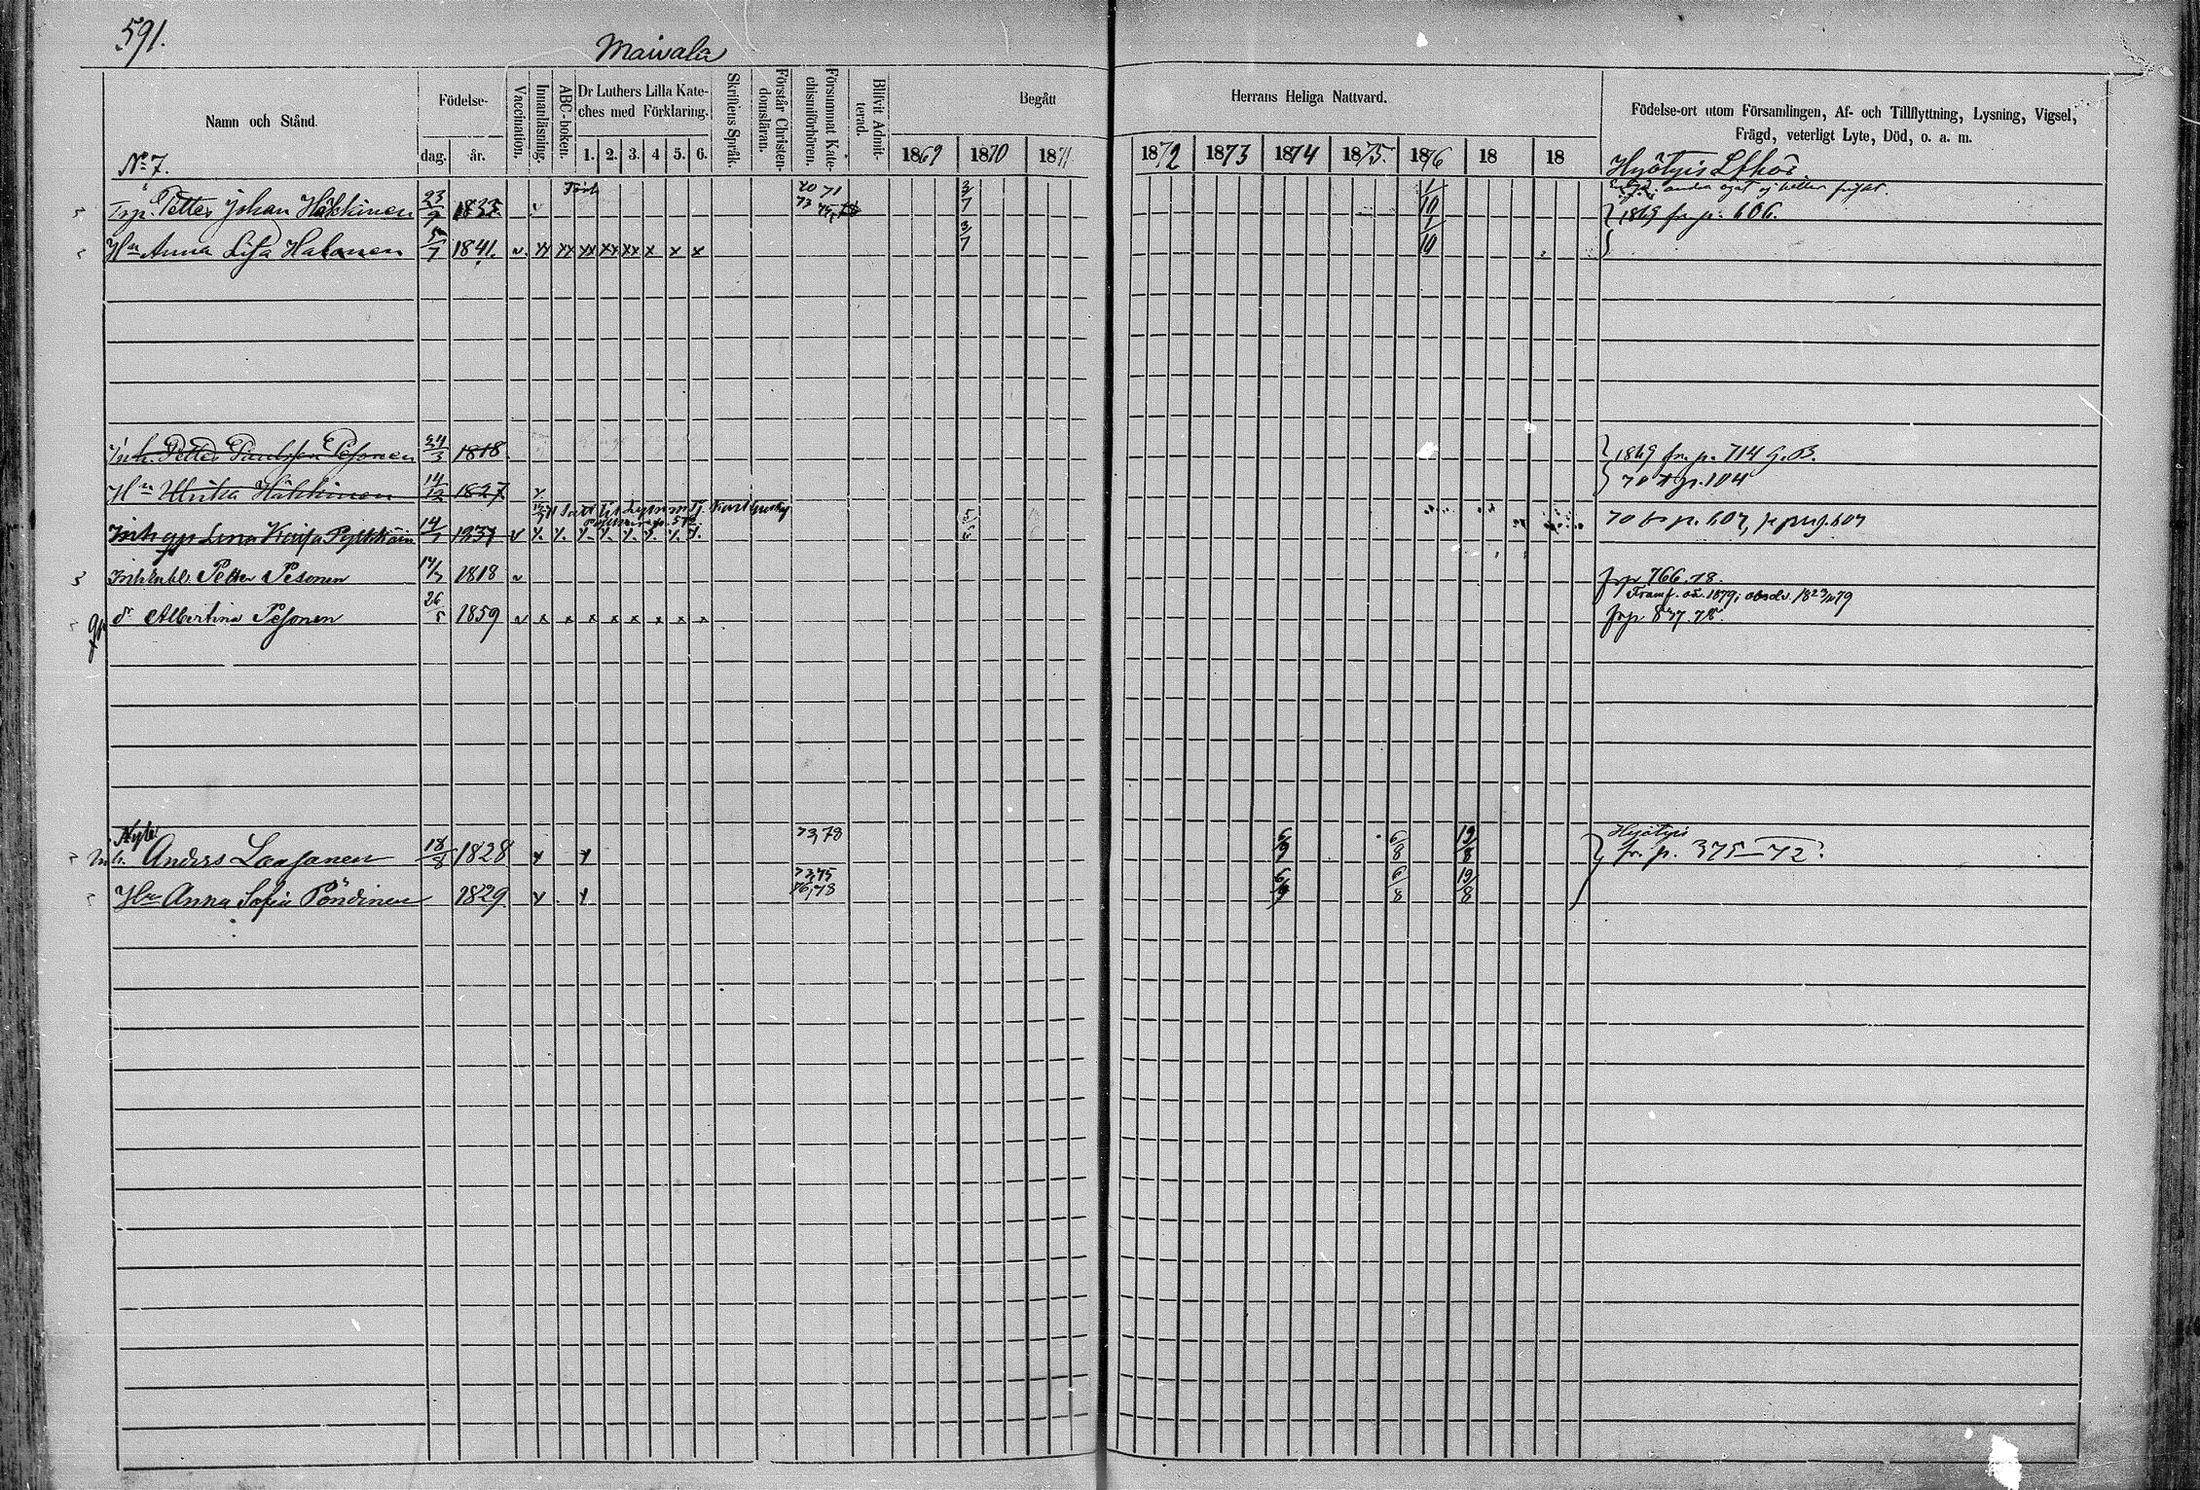 591.
Maivala
Namn och Stånd.
Födelse-
dag. år.
Vaccination.
Innanläsning.
ABC-boken.
Dr Luthers Lilla Kate-
ches med Förklaring.
1. 2. 3. 4 5. 6.
Skriftens Språk.
Förstår Christen-
domsläran.
Försummat Kate-
chismiförhören.
Blifvit Admit-
terad.
Begått Herrans Heliga Nattvard.
1869 1870 1871 1872 1873 1874 1875. 1876 18 18
Födelse-ort utom Församlingen, Af- och Tillflyttning, Lysning, Vigsel,
Frägd, veterligt Lyte, Död, o. a. m.
No 7.
Hyötyis
70 71
Petter Johan Häkkinen 23/9 1835 v 73 3/7 1/10
1869 fr. p. 606.
Hu Anna Lisa Halonen 5/7 1841. v xx xx xx xx xx x x x 3/7 1/10
Inh. Petter Paulsson Pesonen 24/3 1818
1869 fr. p. 714 G. B.
Hu Ulrika Häkkinen 14/12 1827
70 t p. 104
Inh Lena Kaisa 14/1 1837 v
5/6
70 fr p. 607,
Petter Pesonen 14/3 1818 v
frp 766. 78.
1879;
dr Albertina Pesonen 26/5 1859 v x x x x x x x x
frp 837. 78.
73,78
Hyötyis
Inh. Anders Laasanen 18/8 1828 x x 6/9 6/8 19/8
fr. p. 375–72.
73,75
Hu Anna Sofia Pöndinen 1829 x x 76,78 6/9 6/8 19/8